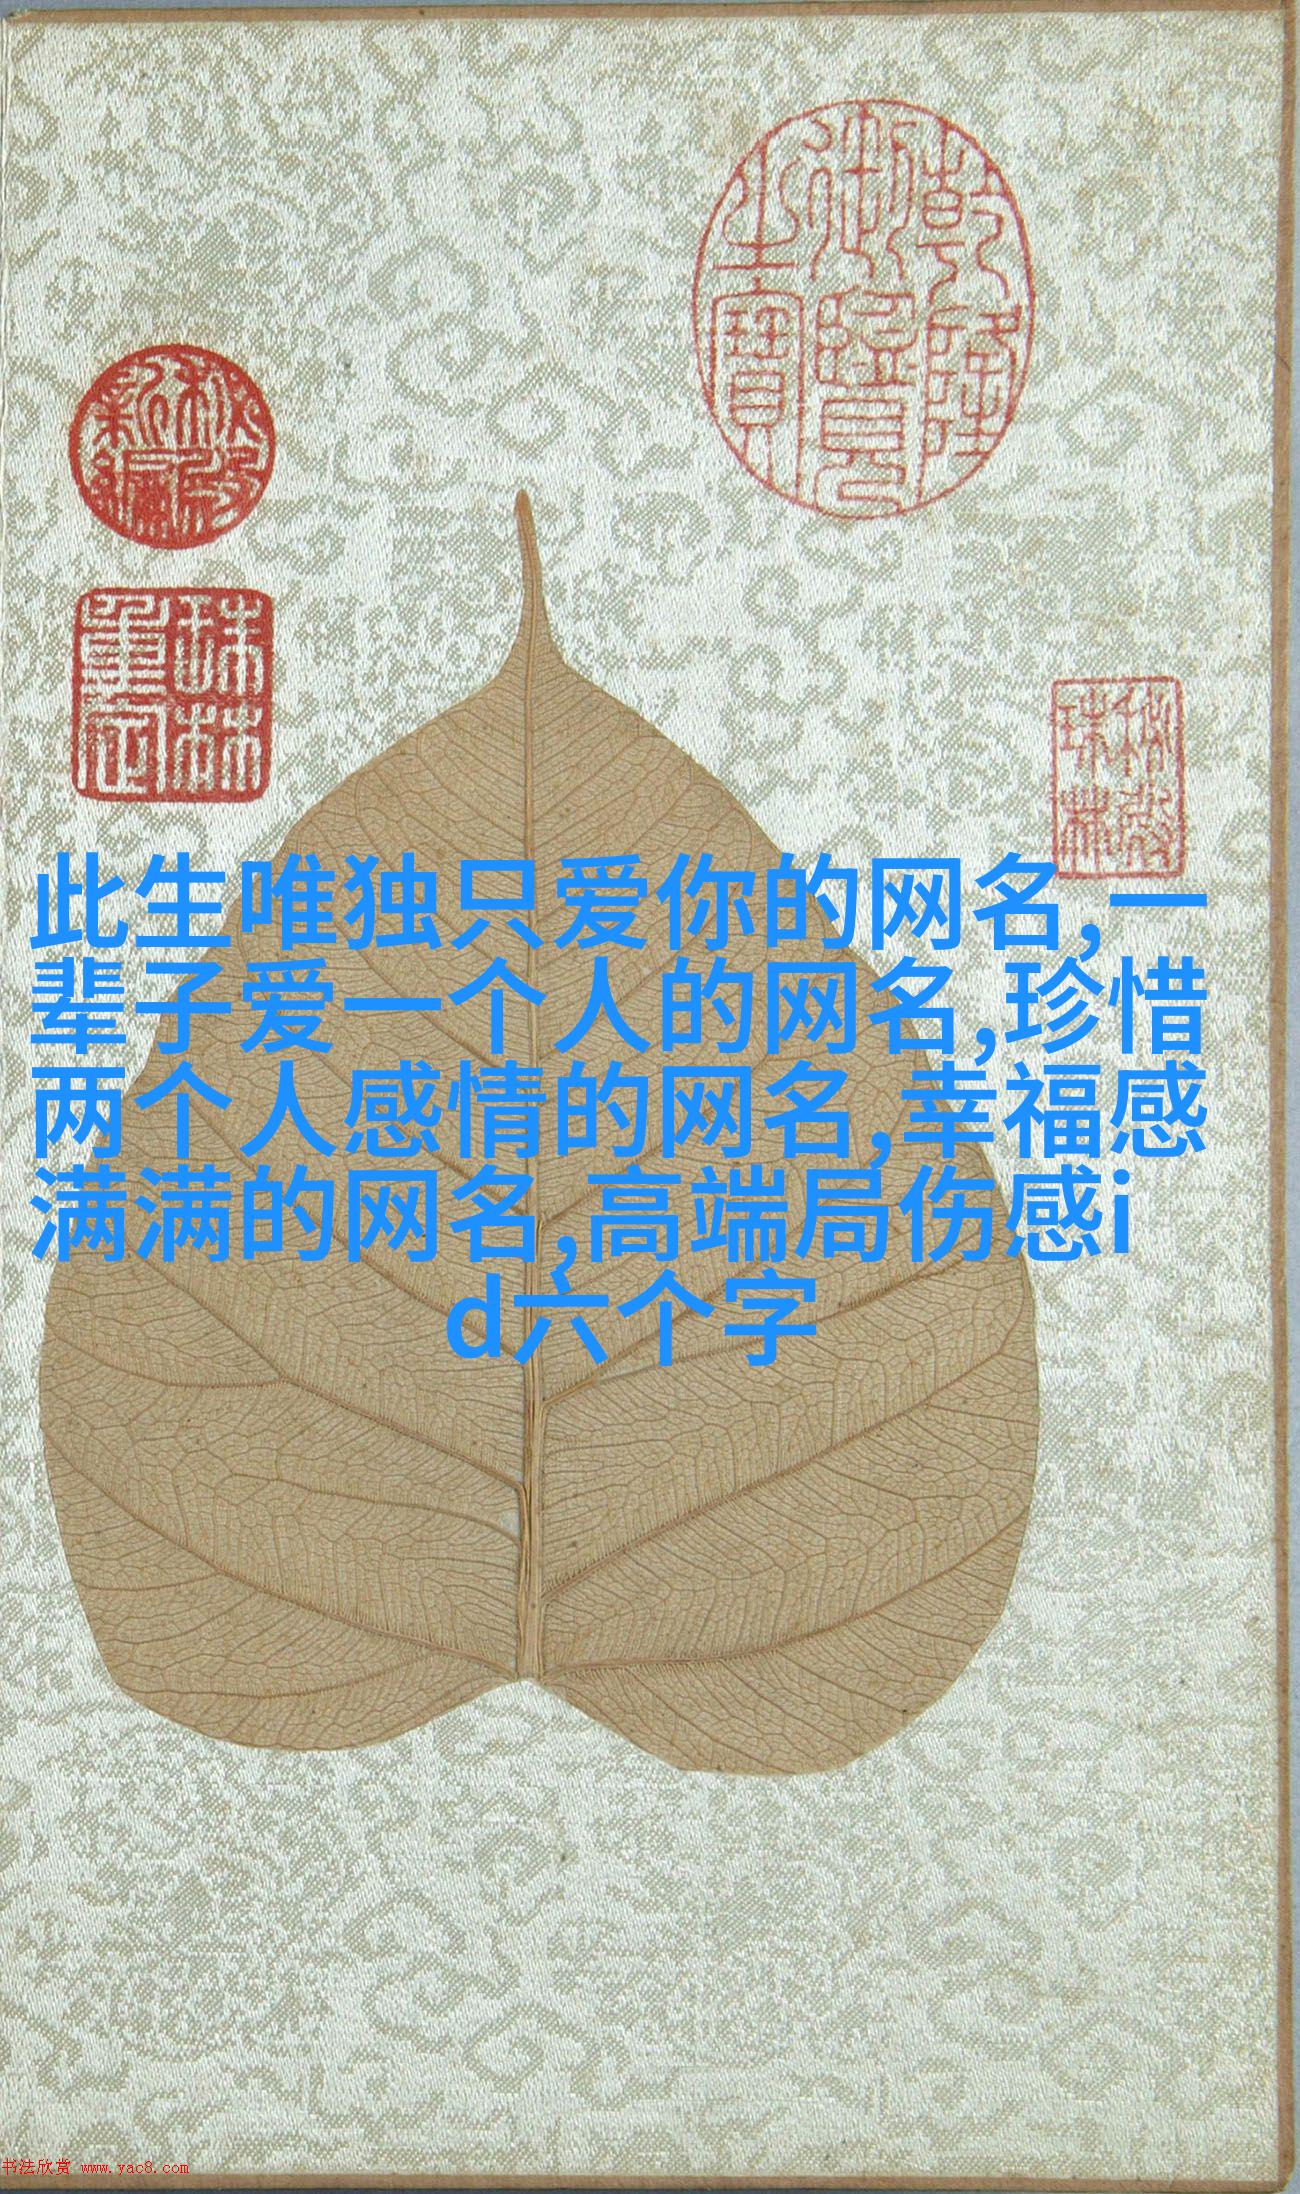 乾隆
御覽
之寶
秘殿
新編
珠林
重定
秘殿
珠林
此生唯独只爱你的网名,一
辈子爱一个人的网名,珍惜
两个人感情的网名,幸福感
满满的网名,高端局伤感i
d六个字
书法欣赏 www.yac8.com